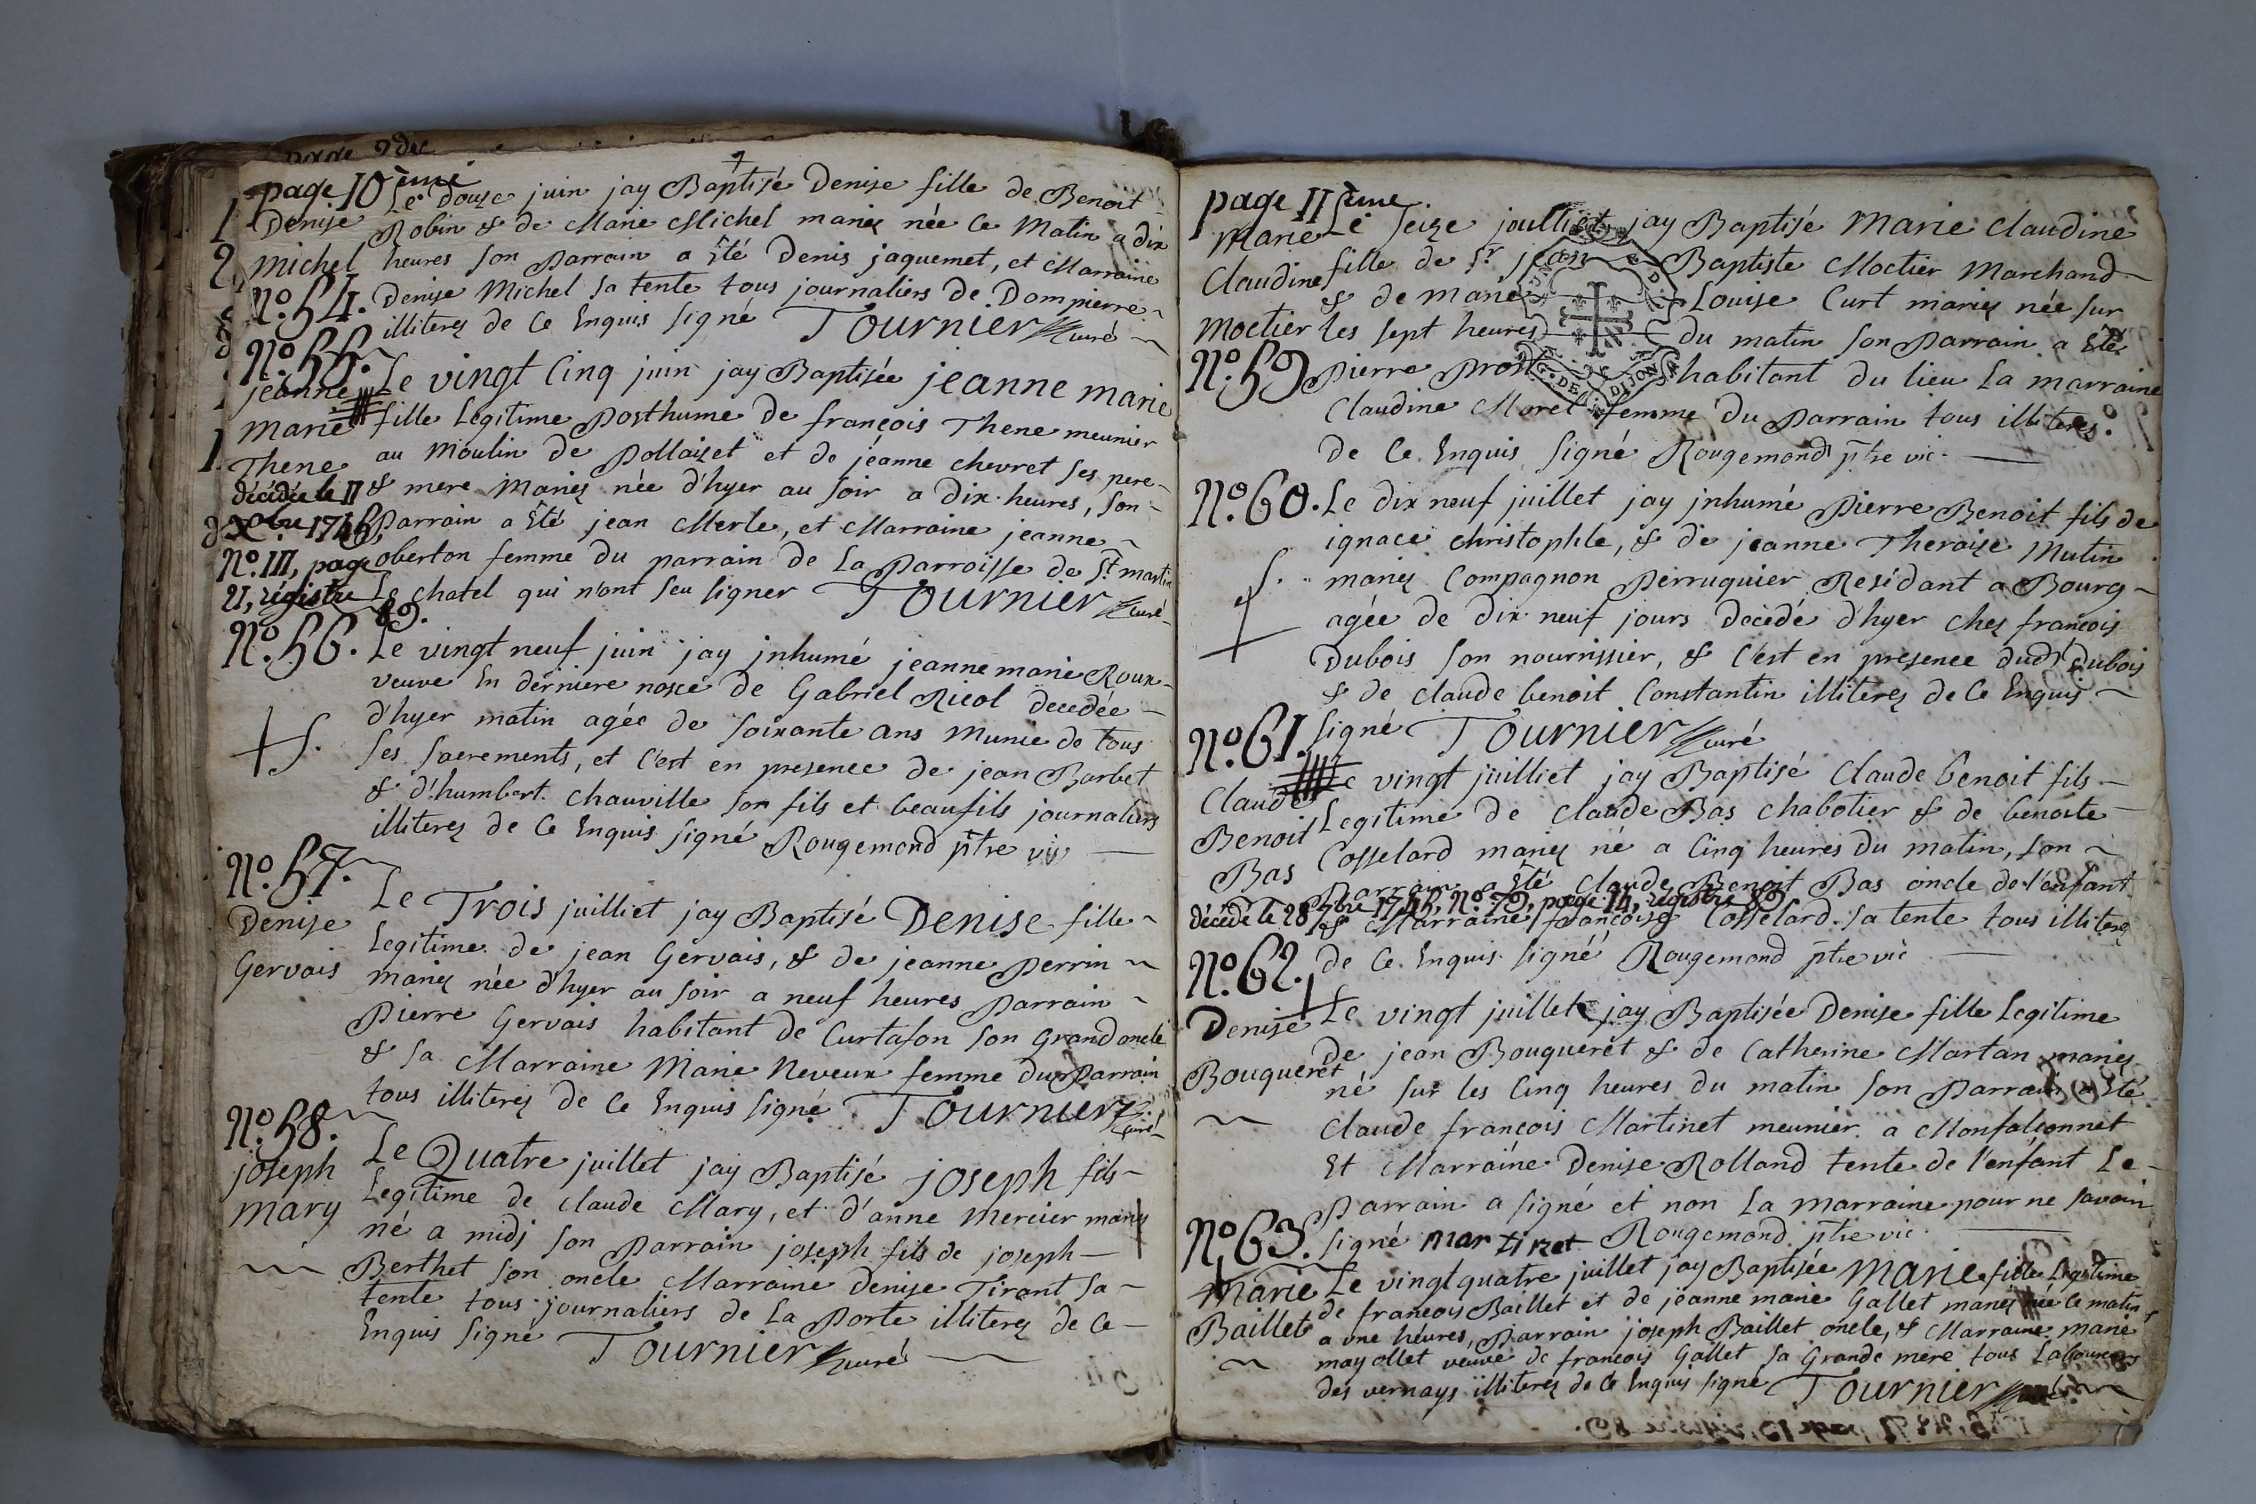 page 10ème
Le douze juin jay Baptisé Denise fille de Benoit
Denise Robin & de Marie Michel mariez née ce Matin a dix
Michel heures son parrain a Eté Denis jaquemet, et Marraine
No. 54. Denise Michel sa tente tous journaliers de Dompierre
illiterez de ce Enquis signé Tournier curé
No. 55.
jeanne Le vingt cinq juin jay Baptisée jeanne marie
marie fille Legitime posthume de françois Thene meunier
Thene au moulin de pollaizet et de jéanne chevret ses pere
décédée le 11 & mere Mariez née d'hyer au soir a dix heures, son
Xbre 1746, parrain a Eté jean Merle, et Marraine jeanne
No. 111, page oberton femme du parrain de La parroisse de St martin
21, régistre Le chatel qui n'ont seu signer Tournier curé
89.
No. 56. Le vingt neuf juin jay jnhumé jeanne marie Roux
veuve En derniere nosce de Gabriel Ricol decedée
d'hyer matin agée de soixante ans Munie de tous
ses sacrements, et c'est en presence de jean Barbet
& d'humbert chauville son fils et beaufils journaliers
illiterez de ce Enquis signé Rougemond ptre vic
No. 57.
Le Trois juilliet jay Baptisé Denise fille
Denise Legitime de jean Gervais, & de jeanne perrin
Gervais mariez née d'hyer au soir a neuf heures parrain
pierre Gervais habitant de Curtafon son Grand oncle
& sa Marraine Marie Neveux femme du parrain
tous illiterez de ce Enquis signé Tournier curé
No. 58.
joseph Le Quatre juillet jay Baptisé joseph fils
mary Legitime de claude Mary, et d'anne mercier mariez
né a midj son parrain joseph fils de joseph
Berthet son oncle Marraine Denise Tirant sa
tente tous journaliers de La porte illiterez de ce
Enquis signé Tournier curé
page 11ème
Marie Le seize joulliet jay Baptisé Marie claudine
Claudine fille de Sr jean Baptiste Moctier Marchand
& de marie Louise Curt mariez née sur
Moctier les sept heures du matin son parrain a Eté
No. 59 pierre habitant du lieu La marraine
G. DE DIJON
Claudine Morel femme du parrain tous illiterez
de ce Enquis signé Rougemond ptre vic
No. 60. Le dix neuf juillet jay jnhumé pierre Benoit fils de
ignace christophle, & de jeanne Theraize Mutin
mariez Compagnon perruquier Residant a Bourg
agée de dix neuf jours decedé d'hyer chez françois
Dubois son nourrissier, & c'est en presence dud Dubois
& de claude benoit Constantin illiterez de ce Enquis
No. 61. signé Tournier curé
Claude Le vingt juilliet jay Baptisé Claude benoit fils
Benoit Legitime de claude Bas chabotier & de benoite
Bas Cosselard mariez né a Cinq heures du matin, son
parrain a Eté Claude Benoit Bas oncle de l'enfant
décédé le 28 7bre 1746, No. 79, page 14, régistre 89
& Marraine françoise Cosselard sa tente tous illiterez
de ce Enquis signé Rougemond ptre vic
No. 62.
Denise Le vingt juillet jay Baptisée Denise fille Legitime
de jean Bouqueret & de Catherine Martan mariez
Bouqueret né sur les cinq heures du matin son parrain a Eté
Claude françois Martinet meunier a Monfalconnet
Et Marraine Denise Rolland tente de l'enfant Le
parrain a signé et non La marraine pour ne savoir
No. 63. signé mar ti net Rougemond ptre vic
Marie Le vingt quatre juillet jay Baptisée Marie fille Legitime
Baillet de francois Baillet et de jeanne marie Gallet mariez née ce matin
a une heures, parrain joseph Baillet oncle, & Marraine marie
mayollet veuve de francois Gallet sa Grande mere tous Laboureurs
des vernays illiterez de ce Enquis signé Tournier curé